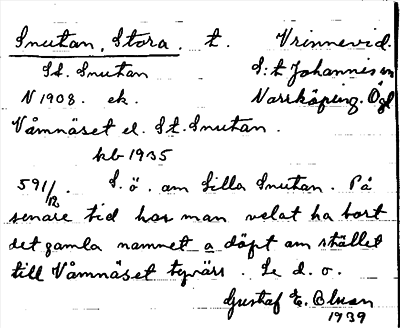 Snutan, Stora. t. Vrinnevid.
St. Snutan S:t Johannis sn
N 1908. ek. Norrköping. Ögl
Våmnäset el. St. Snutan.
kb 1935
591/B. S. ö. om Lilla Snutan. På
senare tid har man velat ha bort
det gamla namnet o döpt om stället
till Våmnäset tyvärr. Se d. o.
Gustaf E. Olsson
1939